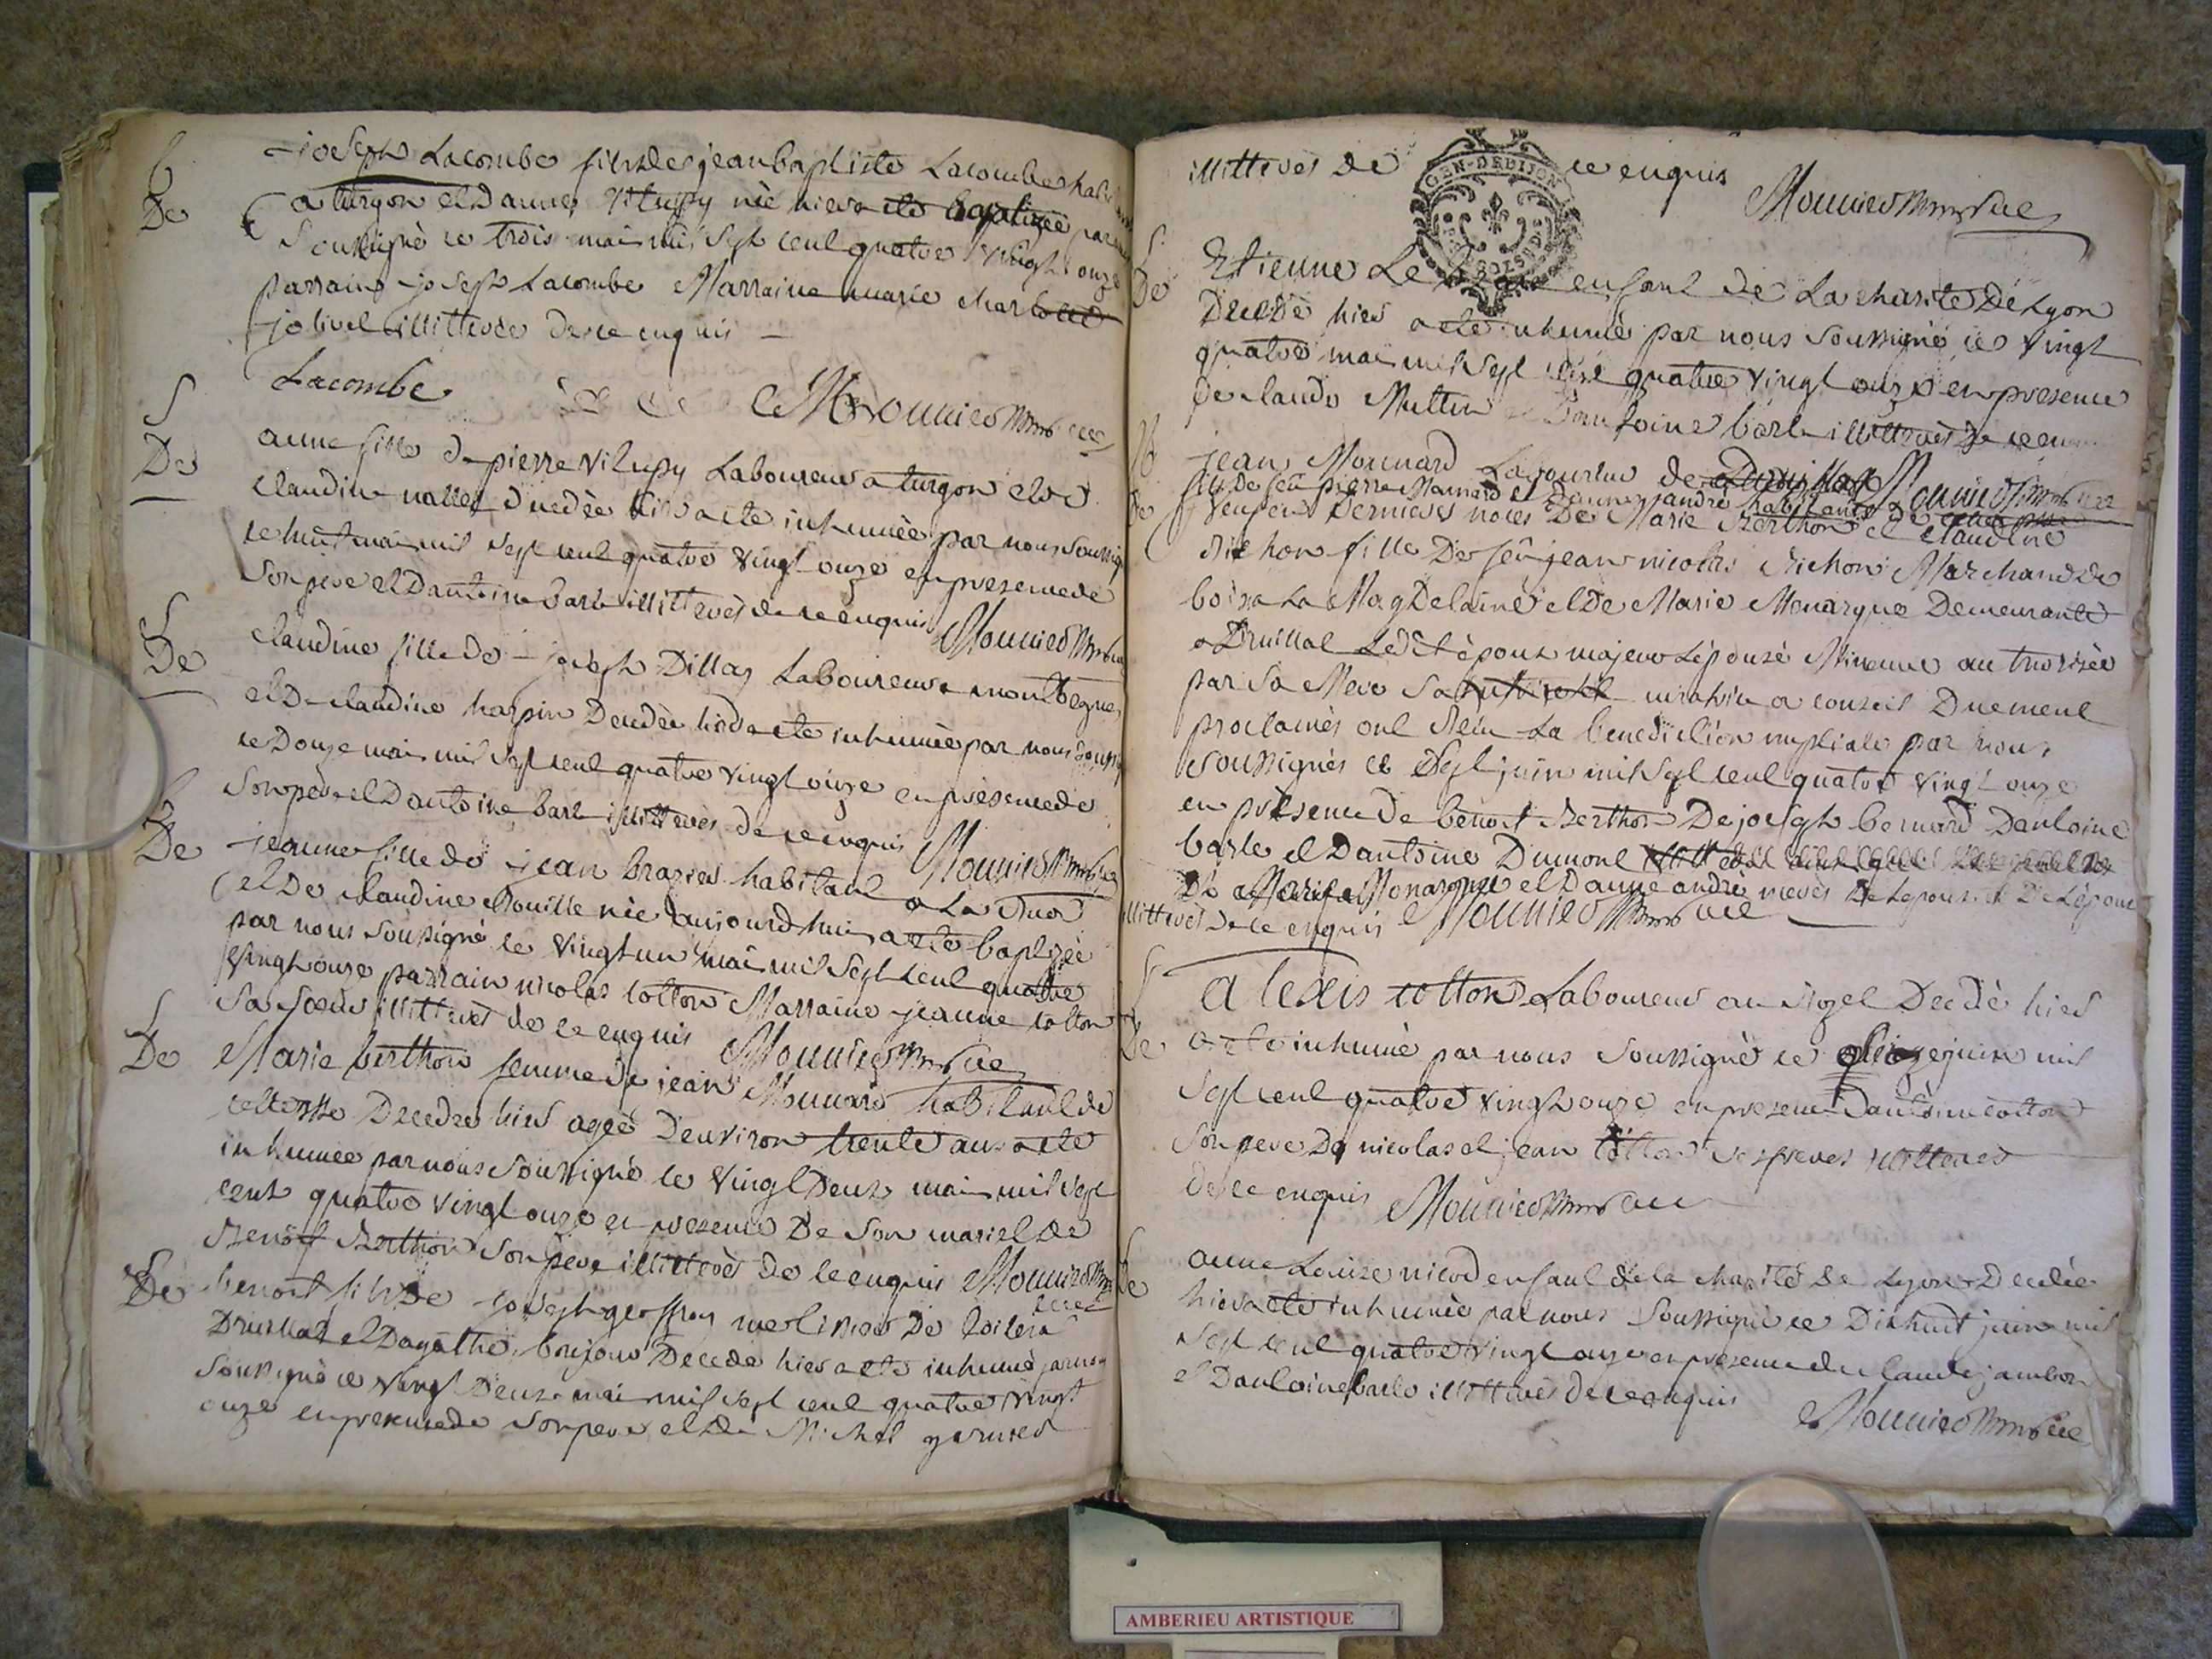 b
De
joseph Lacombe fils de jean baptiste Lacombe
a turgon et Danne née hier a eté baptizée par
Soussigné ce trois mai mil sept cent quatre vingt onze
parrain joseph Lacombe Marraine marie
jolivet illitterée de ce enquis
Lacombe Mounier
S
De
anne fille de pierre Laboureur a turgon et de
Claudine decedée hier a eté inhumée par nous
ce huit mai mil sept cent quatre vingt onze en presence de
Son pere et Dantoine barle illitterés de ce enquis Mounier
S
De
Claudine fille de joseph Dillas Laboureur a
et De claudine harpin Decedée hier a eté inhumée par nous
ce Douze mai mil sept cent quatre vingt onze en présence de
Son pere et Dantoine barle illitterés de ce enquis Mounier
b
De
jeanne fille de jean brazier habitant a La
et De Claudine née aujourdhui a eté baptizée
par nous soussigné le vingt un mai mil sept cent quatre
vingt onze parrain nicolas cotton Marraine jeanne cotton
Sa Soeur illitterés de ce enquis Mounier
S
De
Marie berthon femme de jean Mounard habitant de
Decedée hier agée Denviron trente ans a eté
inhumée par nous Soussigné le vingt Deux mai mil sept
cent quatre vingt onze en presence De Son mari et De
Benoit Berthon Son pere illitterés de ce enquis Mounier
S
De
benoit fils De joseph geoffray De
Druillat et Dagathe bonjour Decedé hier a eté inhumé par nous
Soussigné ce vingt Deux mai mil sept cent quatre vingt
onze en presence de Son pere et De Michel
illitterés de ce enquis
GEN·DE DIJON
Mounier
S
De
Etienne Le enfant de La charité De Lyon
Decedé hier a eté inhumé par nous Soussigné ce vingt
quatre mai mil sept cent quatre vingt onze en presence
de Claude Muttin et Dantoine barle illitterés de ce
M
de
jean Mounard Laboureur de Mounier
fils de feu pierre Mounard et Danne andré habitant
veuf en Dernieres noces De Marie Berthon et Claudine
Richon fille De feu jean nicolas Richon Marchand de
bois a La Magdelaine et De Marie Monarque Demeurante
a Druillat Ledit époux majeur Lépouse Mineure authorizée
par Sa Mere Sa curatrice a conseil Duement
proclamés ont Reçu La benediction nuptiale par nous
Soussignés ce Sept juin mil sept cent quatre vingt onze
en présence de benoit Berthon De joseph bernard Dantoine
barle et Dantoine Dumont
De Marie Monarque et Danne andré meres De Lepoux et De Lépouse
illitterés de ce enquis Mounier
S
De
alexis cotton Laboureur au Decedé hier
a eté inhumé par nous Soussigné ce juin mil
Sept cent quatre vingt onze en presence Dantoine cotton
Son pere De nicolas et jean cotton Ses freres illitterés
de ce enquis Mounier
S
De
anne Louise nicod enfant de la charité de Lyon Decedée
hier a eté inhumée par nous Soussigné ce Dix huit juin mil
Sept cent quatre vingt onze en présence de claude jambon
et Dantoine barle illitterés de ce enquis
Mounier
AMBERIEU ARTISTIQUE